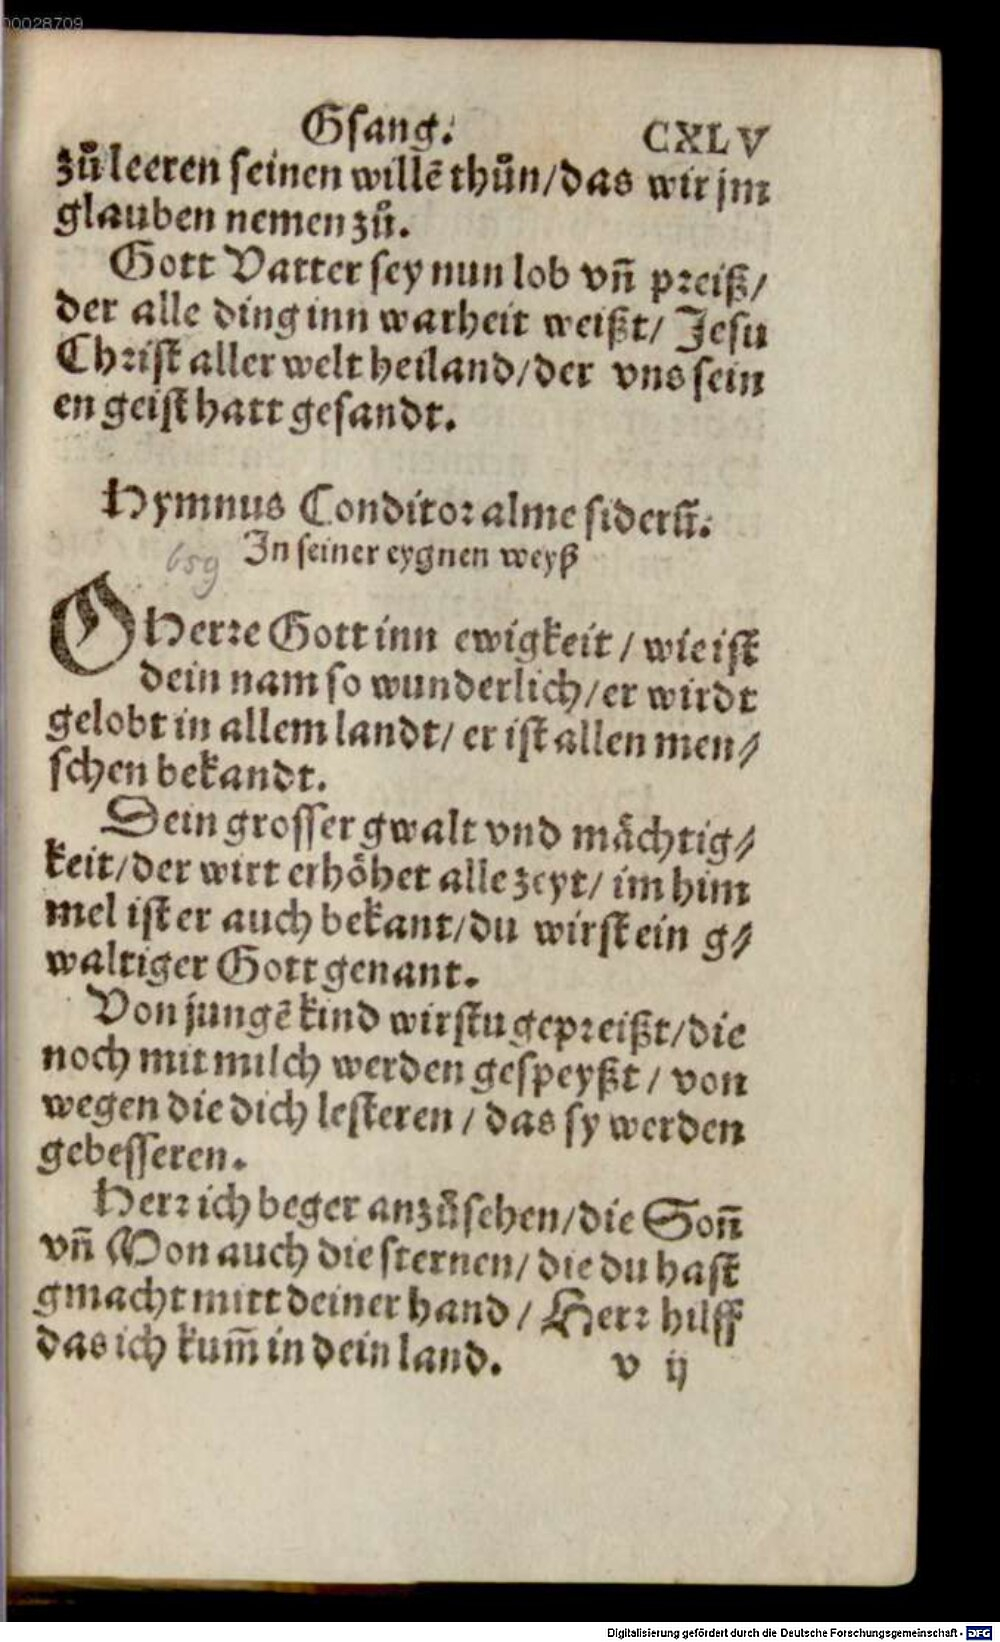 00028709
Gsang. CXLV
zů leeren seinen willẽ thůn/das wir jm
glauben nemen zů.
Gott Vatter sey nun lob vñ preiß/
der alle ding inn warheit weißt/ Jesu
Christ aller welt heiland/der vns sein
en geist hatt gesandt.
Hymnus Conditor alme siderũ.
In seiner eygnen weyß
659
O Herre Gott inn ewigkeit / wie ist
dein nam so wunderlich/er wirdt
gelobt in allem landt/ er ist allen men⸗
schen bekandt.
Dein grosser gwalt vnd mächtig⸗
keit/der wirt erhöhet alle zeyt/ im him
mel ist er auch bekant/du wirst ein g⸗
waltiger Gott genant.
Von jungẽ kind wirstu gepreißt/die
noch mit milch werden gespeyßt / von
wegen die dich lesteren / das sy werden
gebesseren.
Herr ich beger anzůsehen/die Soñ
vñ Mon auch die sternen/ die du hast
gmacht mitt deiner hand / Herr hilff
das ich kum̃ in dein land. v ij
Digitalisierung gefördert durch die Deutsche Forschungsgemeinschaft - DFG